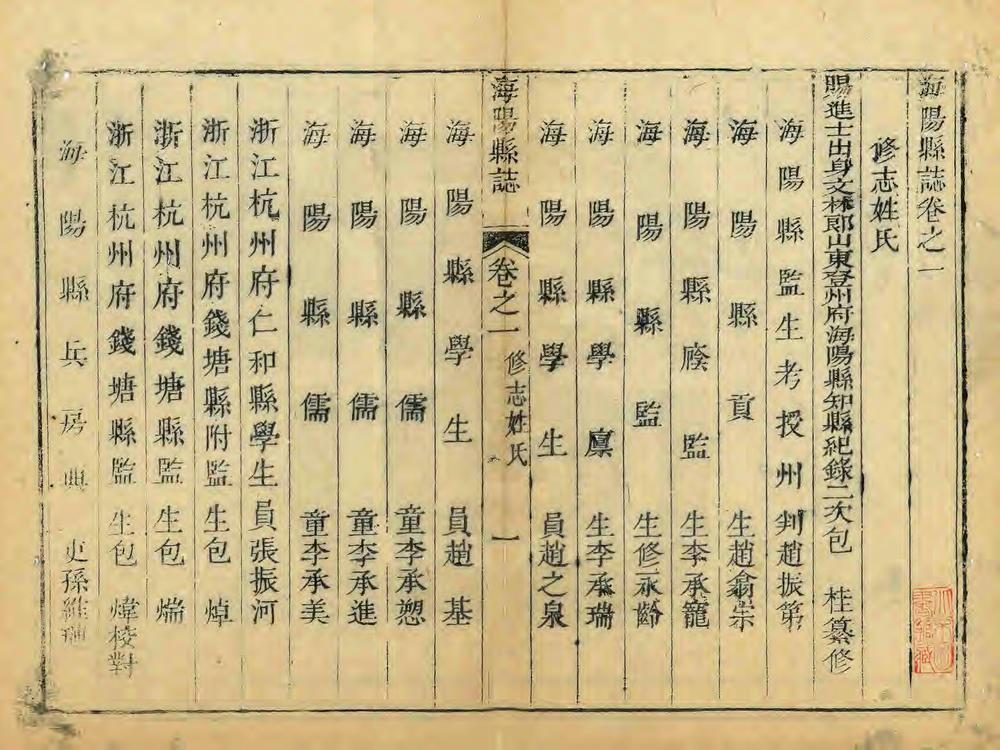 海陽縣誌卷之一
修志姓氏
賜進士出身文林郎山東登州府海陽縣知縣紀錄二次包 桂纂修
海陽縣監生考授州判趙振第
海陽縣貢生趙翕崇
海陽縣廕監生李承寵
海陽縣監生修永齡
海陽縣學廩生李承瑞
海陽縣學生員趙之泉
海陽縣誌 卷之一 修志姓氏 一
海陽縣學生員趙 基
海陽縣儒童李承愬
海陽縣儒童李承進
海陽縣儒童李承美
浙江杭州府仁和縣學生員張振河
浙江杭州府錢塘縣附監生包 焯
浙江杭州府錢塘縣監生包 煓
浙江杭州府錢塘縣監生包 煒校對
海陽縣兵房典吏孫維